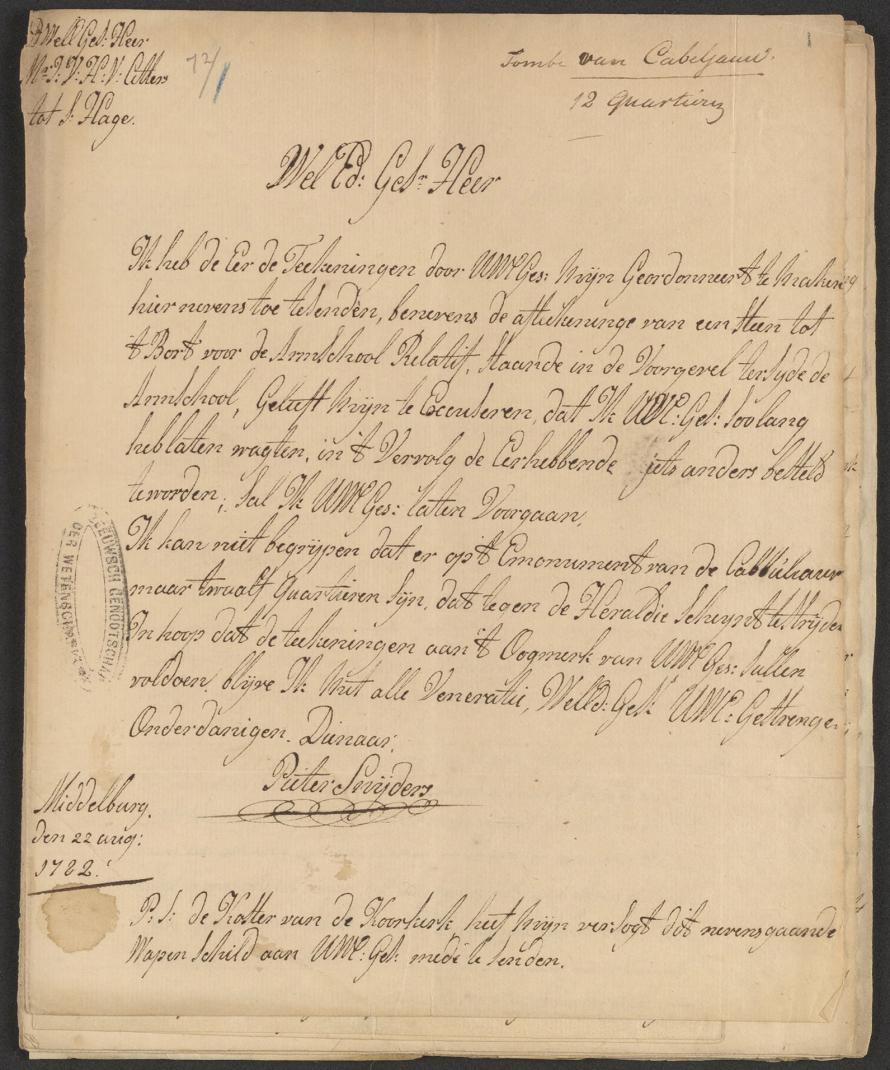 Well Ges: Heer
Mr. J: V: H: V: Citters
tot S: Hage.
72/1
Tombe van Cabeljauw.
12 Quartieren
Wel Ed: Gesr Heer
Ik heb de Eer de Teekeningen door UWE Ges: Mijn Geordonneert te maken
hier nevens toe te senden, benevens de aftekeninge van een steen tot
't Bort voor de Armschool Relatif, staande in de Voorgevel ter syde de
Armschool, Gelieft Mijn te Excuseren, dat Ik UWE: Ges: soo lang
heb laten wagten, in 't Vervolg de Eer hebbende iets anders besteld
te worden; sal Ik UWE Ges: laten Voorgaan.
Ik kan niet begrijpen dat er op 't Emonument van de Cabbeliauw
maar twaalf quartieren sijn, dat tegen de Heraldie scheynt te strijden
In hoop dat de teekeningen aan 't Oogmerk van UWE Ges: sullen
voldoen, blijve Ik Met alle Veneratie, WelEd: Gesr UWE: Gestrenge
Onderdanigen Dienaar,
Pieter Snijders
Middelburg.
den 22 aug:
1722.
P: S: de Koster van de Koorkerk heeft Mijn versogt dit nevensgaande
Wapen schild aan UWE: Ges: mede te senden.
ZEEUWSCH GENOOTSCHAP
DER WETENSCHAPPEN